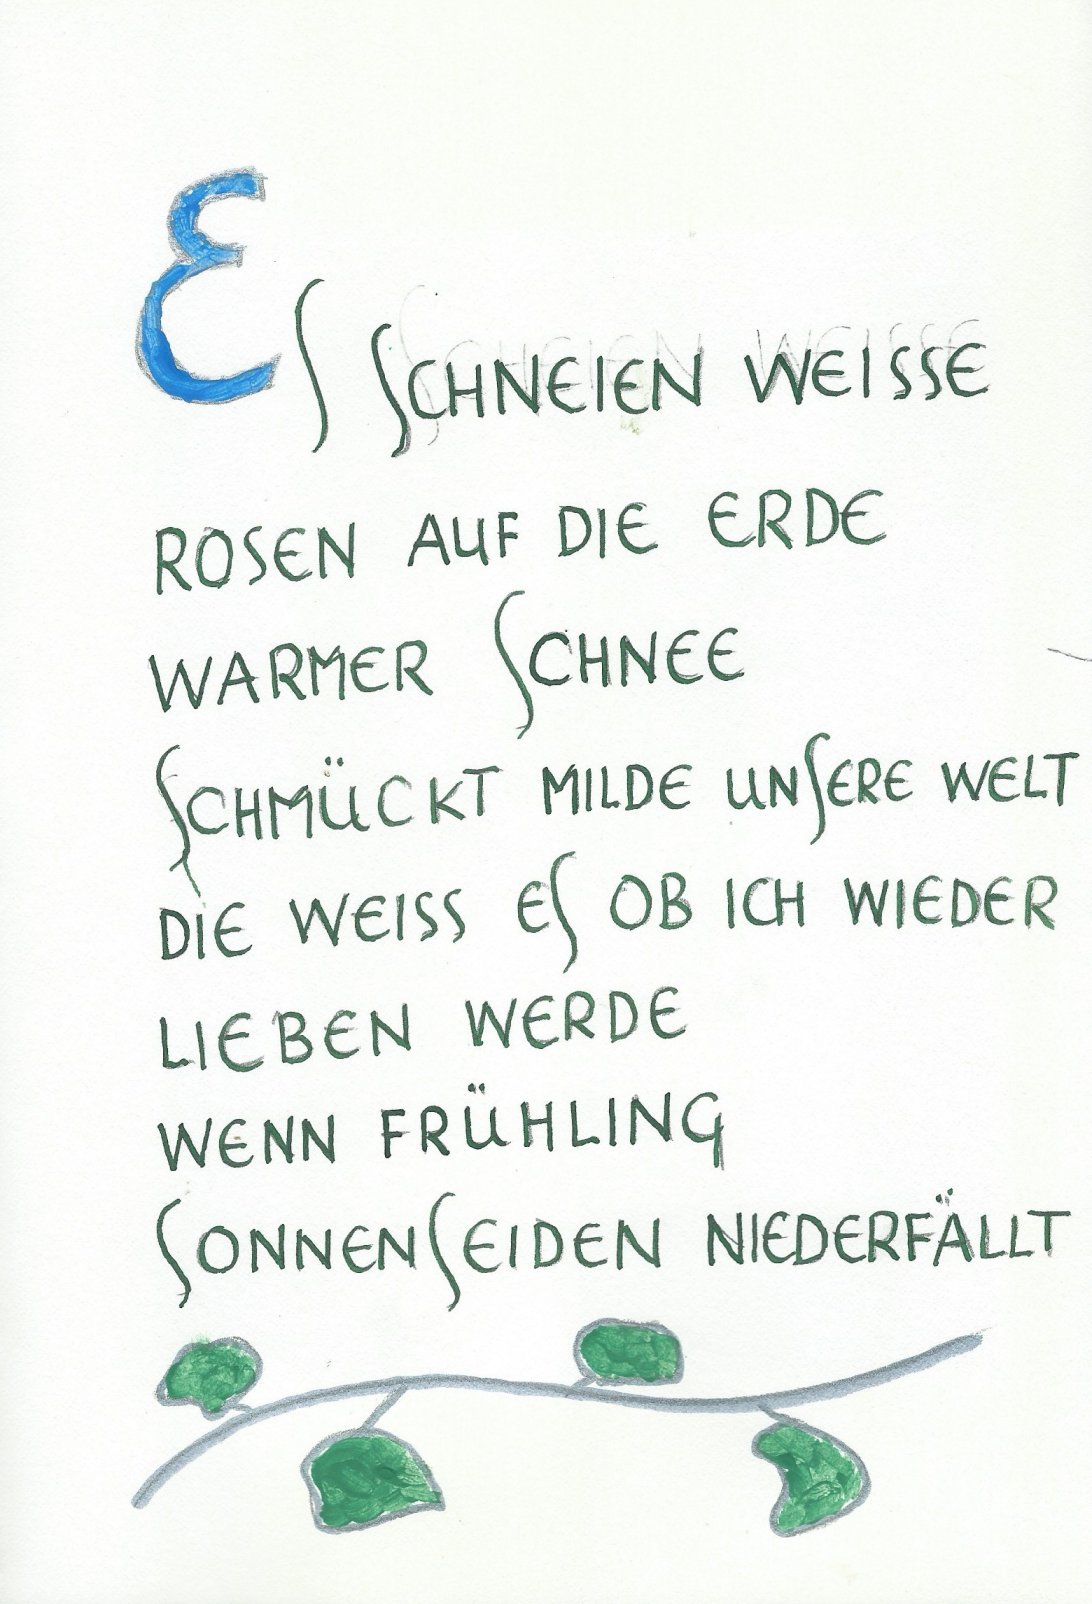 ES SCHNEIEN WEISSE
ROSEN AUF DIE ERDE
WARMER SCHNEE
SCHMÜCKT MILDE UNSERE WELT
DIE WEISS ES OB ICH WIEDER
LIEBEN WERDE
WENN FRÜHLING
SONNENSEIDEN NIEDERFÄLLT